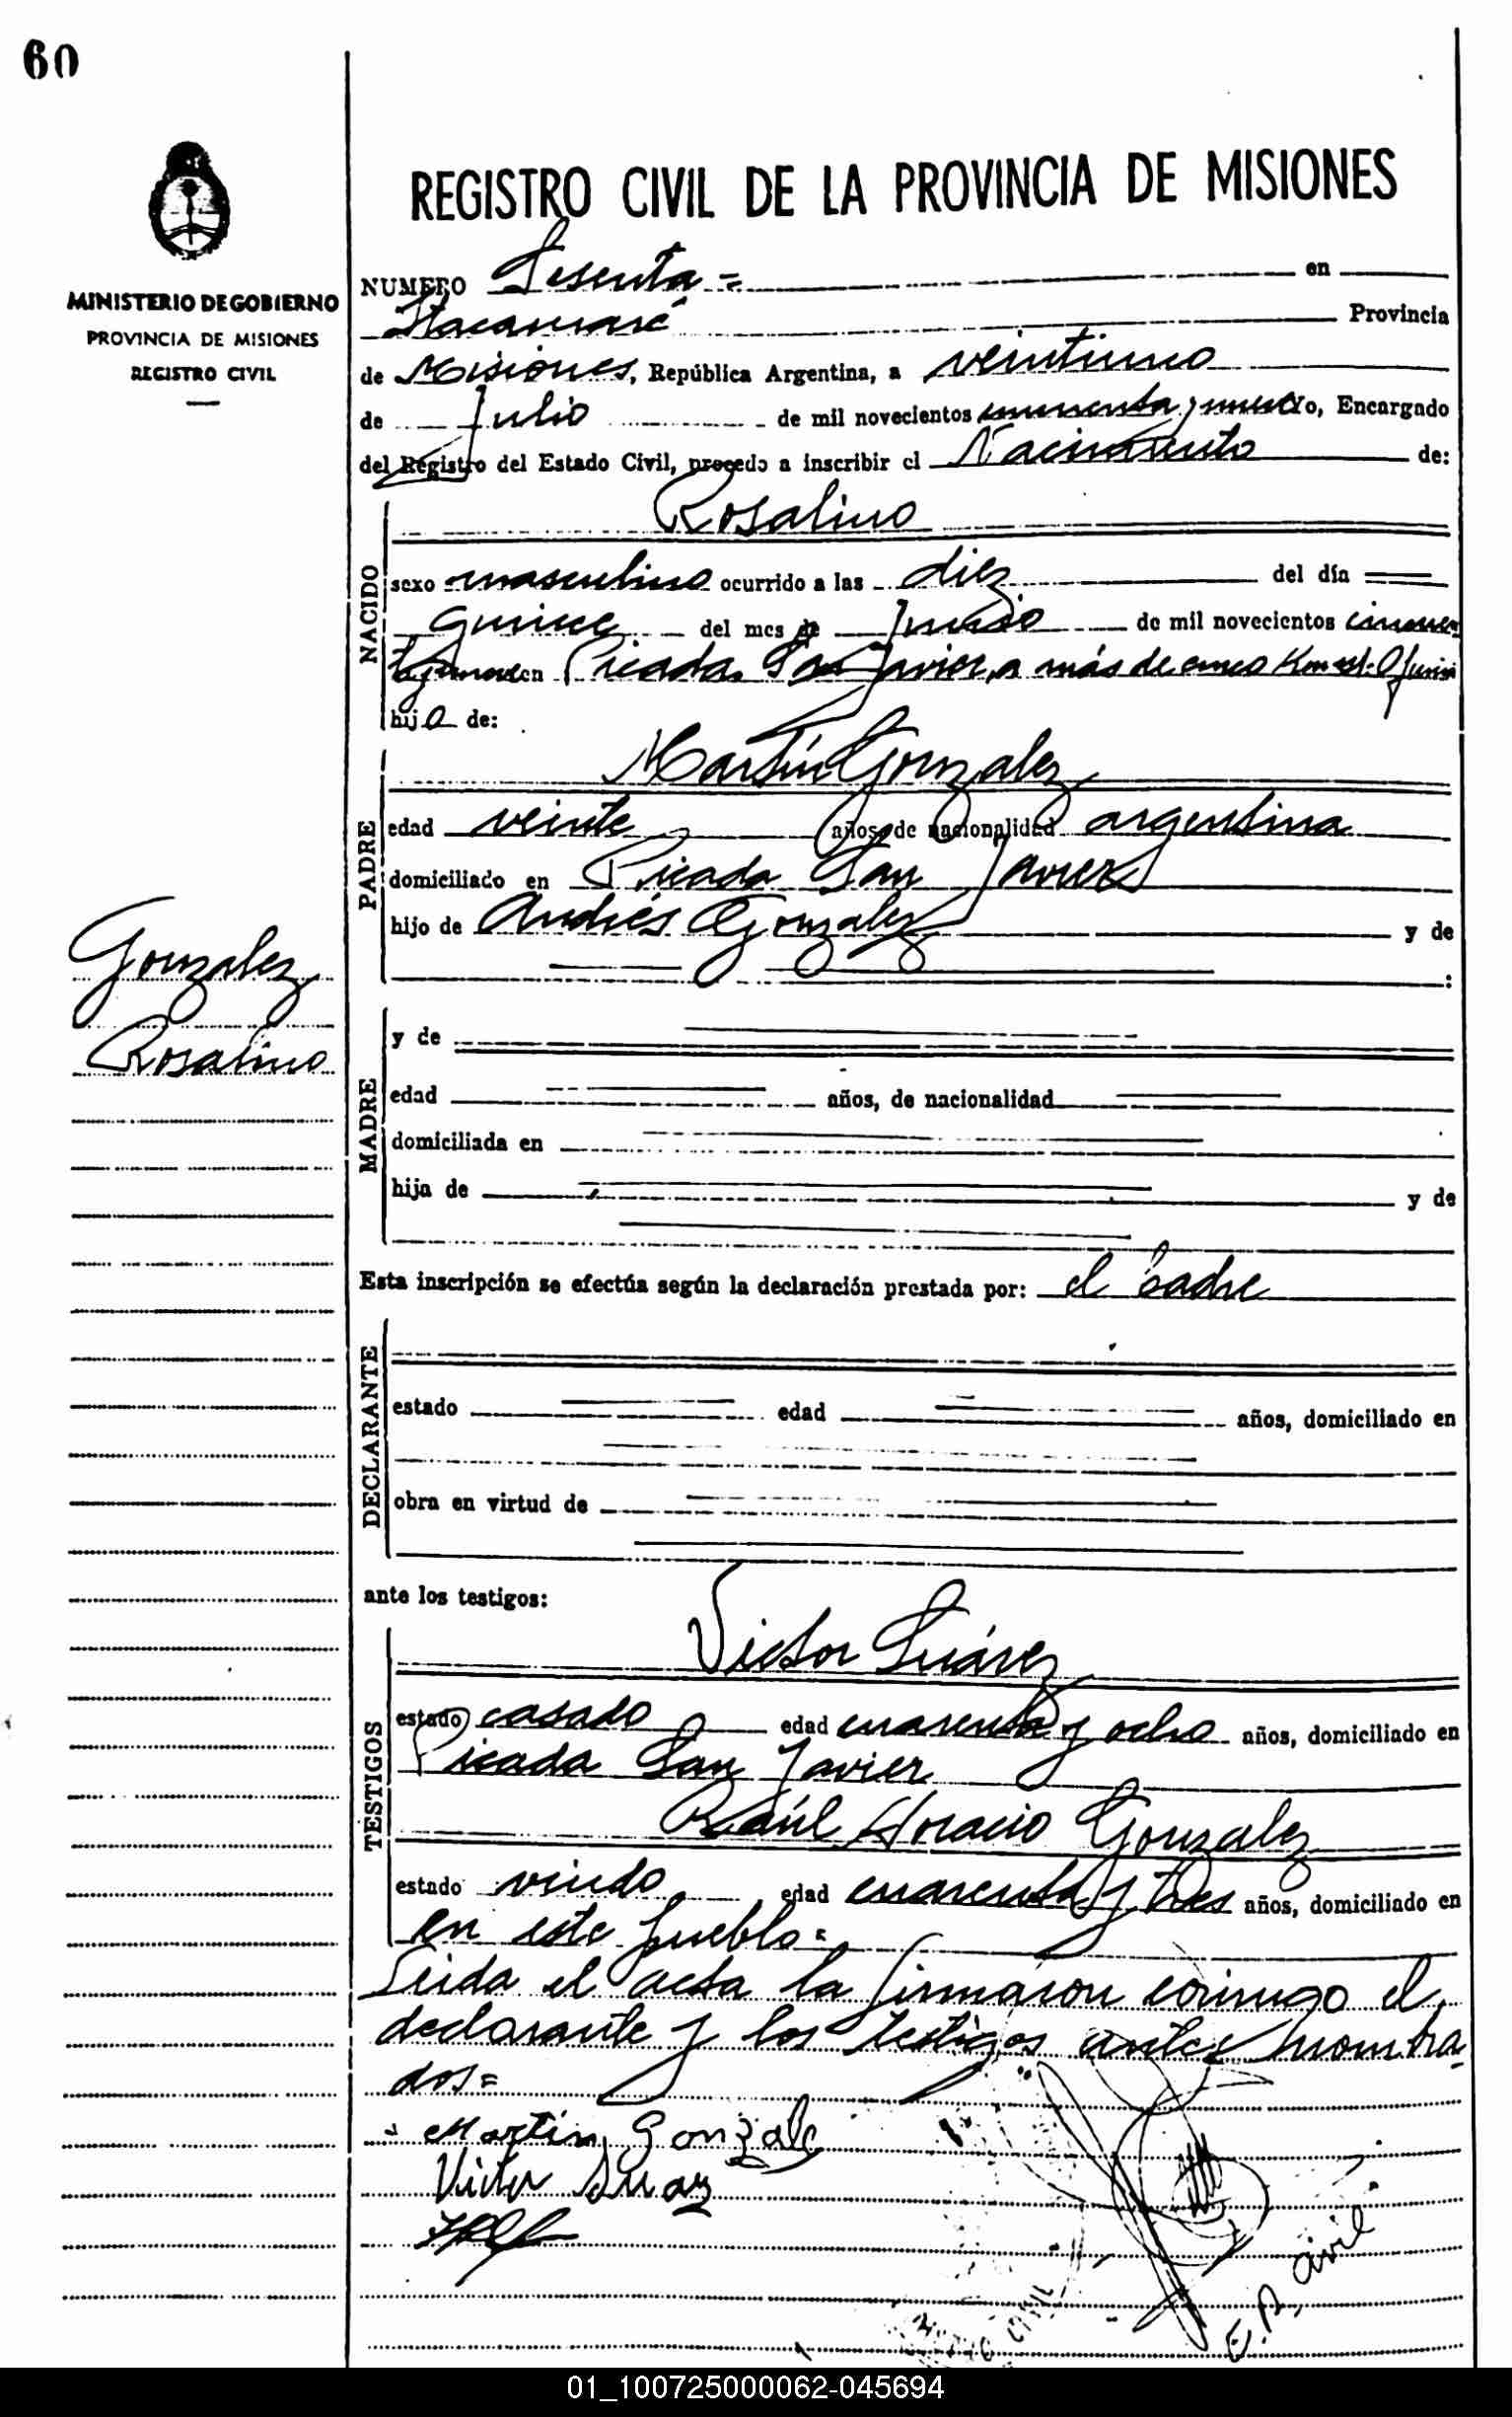 60
MINISTERIO DE GOBIERNO
PROVINCIA DE MISIONES
REGISTRO CIVIL
REGISTRO CIVIL DE LA PROVINCIA DE MISIONES
NUMERO Sesenta = en
Itacaruaré Provincia
de Misiones, República Argentina, a veintiuno
de Julio de mil novecientos o, Encargado
del Registro del Estado Civil, procedo a inscribir el Nacimiento de:
NACIDO
Rosalino
sexo masculino ocurrido a las diez del día
quince del mes de Junio de mil novecientos
en Picada San Javier, a más de cinco Km
hijo de:
PADRE
Martín Gonzalez
edad veinte años, de nacionalidad argentina
domiciliado en Picada San Javier
hijo de Andrés Gonzalez y de
:
Gonzalez
Rosalino
MADRE
y de
edad años, de nacionalidad
domiciliada en
hija de y de
Esta inscripción se efectúa según la declaración prestada por: el padre
DECLARANTE
estado edad años, domiciliado en
obra en virtud de
ante los testigos:
TESTIGOS
Victor Suárez
estado casado edad cuarenta y ocho años, domiciliado en
Picada San Javier
Raúl Horacio Gonzalez
estado viudo edad cuarenta y tres años, domiciliado en
en este pueblo=
Leida el acta la firmaron conmigo el
declarante y los testigos antes nombra
dos=
Martin Gonzale
Victor Suarez
01_100725000062-045694